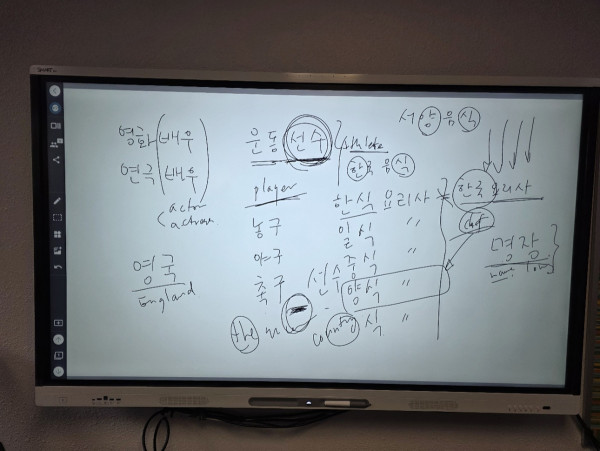 영화 (배우)
연극 (배우)
actor
actress
영국
England
운동 선수
player
농구
야구
축구
선수
athlete
한국 음식
한식 요리사
일식 〃
중식
양식 〃
식 〃
the
country
서양 음식
한국 요리사
chef
명장